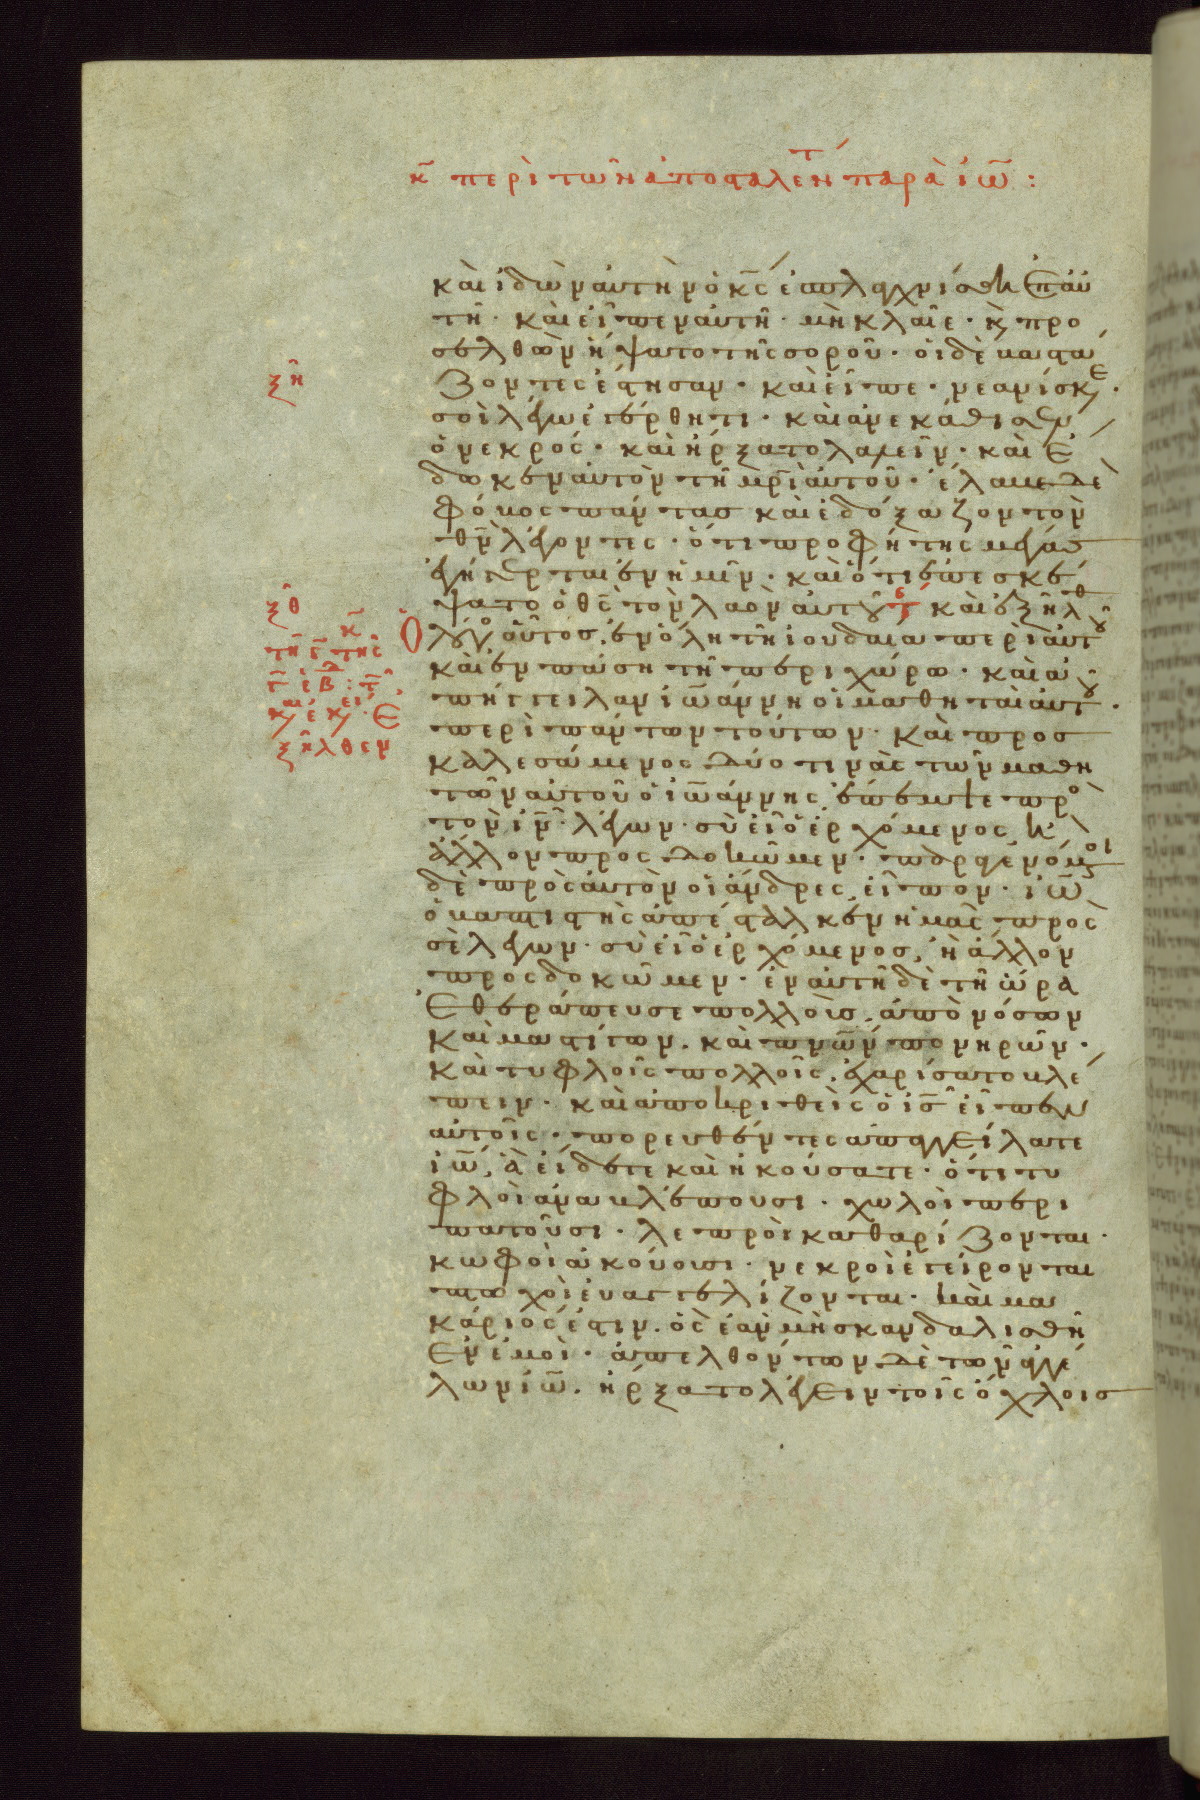 κ̄ περὶ τῶν ἀποσταλέντ παρὰ ἰω̄ :
καὶ ἰδὼν αὐτὴν ὁ κ̄ς ἐσπλαγχνίσθη ἐπ αὐ
τῆ · καὶ εἶπεν αὐτῆ · μὴ κλαῖε · κ προ
σελθὼν ἥψατο τῆς σοροῦ · οἱ δὲ βαστά
ζοντες ἔστησαν · καὶ εἶπε · νεανίσκε ·
ξη
σοὶ λέγω ἐγέρθητι · καὶ ἀνεκάθισεν
ὁ νεκρός · καὶ ἤρξατο λαλεῖν · καὶ ἔ
δωκεν αὐτὸν τῆ μρ̄ὶ αὐτοῦ · ἔλαβε δὲ
φόβος πάντας καὶ ἐδόξαζον τὸν
θν̄ λέγοντες · ὅτι προφήτης μέγας
ἐγήγερται ἐν ἡμῖν · καὶ ὅτι ἐπεσκέ
ψατο ὁ θς̄ τὸν λαὸν αὐτοῦ τέ καὶ ἐξῆλθ
ξθ
ὁ λόγος οὗτος, ἐν ὅλη τῆ ἰουδαία περὶ αὐτοῦ
καὶ ἐν πάση τῆ περιχώρω · καὶ ἀ
πήγγειλαν ἰωάννη οἱ μαθηταὶ αὐτοῦ ·
ἐξῆλθεν
περὶ πάντων τούτων · καὶ προσ
καλεσάμενος δύο τινὰς τῶν μαθη
τῶν αὐτοῦ ὁ ἰωάννης, ἔπεμψε πρὸ
τὸν ιν̄ · λέγων · σὺ εἶ ὁ ἐρχόμενος, ἢ
ἄλλον προσδοκῶμεν · παραγενόμοι
δὲ πρὸς αὐτὸν οἱ ἄνδρες, εἶπον · ἰω̄
ὁ βαπτιστὴς ἀπέσταλκεν ἡμᾶς πρὸς
σὲ λέγων · σὺ εἶ ὁ ἐρχόμενος, ἢ ἄλλον
προσδοκῶμεν · ἐν αὐτῆ δὲ τῆ ὥρα
ἐθεράπευσε πολλοὺς, ἀπὸ νόσων
καὶ μαστίγων, καὶ πνῶν πονηρῶν ·
καὶ τυφλοῖς πολλοῖς, ἐχαρίσατο βλέ
πειν · καὶ ἀποκριθεὶς ὁ ις̄ εἶπεν
αὐτοῖς · πορευθέντες ἀπαγγείλατε
ἰω̄, ἃ εἴδετε καὶ ἠκούσατε · ὅτι τυ
φλοὶ ἀναβλέπουσι · χωλοὶ περι
πατοῦσι · λεπροὶ καθαρίζονται ·
κωφοὶ ἀκούουσι · νεκροὶ ἐγείρονται
πτωχοὶ εὐαγγελίζονται · καὶ μα
κάριός ἐστιν, ὃς ἐὰν μὴ σκανδαλισθῆ
ἐν ἐμοὶ · ἀπελθόντων δὲ τῶν ἀγγέ
λων ἰω̄, ἤρξατο λέγειν τοῖς ὄχλοις